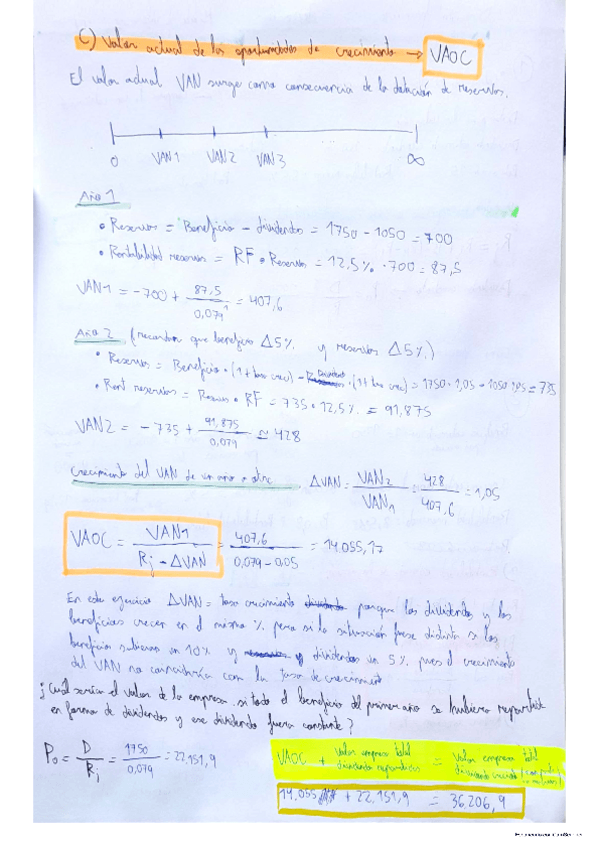 C) Valor actual de las oportunidades de crecimiento → VAOC
El valor actual VAN surge como consecuencia de la dotación de reservas.
0 VAN1 VAN2 VAN3 ∞
Año 1
• Reservas = Beneficio - dividendos = 1750 - 1050 = 700
• Rentabilidad reservas = RF • Reservas = 12,5% · 700 = 87,5
VAN1 = -700 + 87,5 / 0,079 = 407,6
Año 2 (recordar que beneficio Δ5% y reservas Δ5%)
• Reservas = Beneficio · (1 + tasa crec) - Dividend · (1 + tasa crec) = 1750 · 1,05 - 1050 · 1,05 = 735
• Rent reservas = Reservas • RF = 735 • 12,5% = 91,875
VAN2 = -735 + 91,875 / 0,079 ≃ 428
Crecimiento del VAN de un año a otro ΔVAN = VAN2 / VAN1 = 428 / 407,6 = 1,05
VAOC = VAN1 / Rj - ΔVAN = 407,6 / 0,079 - 0,05 = 14.055,17
En este ejercicio ΔVAN = tasa crecimiento porque los dividendos y los
beneficios crecen en el mismo % pero si la situación fuese distinta si los
beneficios subieran un 10% y dividendos un 5% pues el crecimiento
del VAN no coincidiría con la tasa de crecimiento
¿Cuál sería el valor de la empresa si todo el beneficio del primer año se hubiera repartido
en forma de dividendos y ese dividendo fuera constante?
P0 = D / Rj = 1750 / 0,079 = 22.151,9
VAOC + Valor empresa total dividendo repartidos = Valor empresa total
14.055 + 22.151,9 = 36.206,9